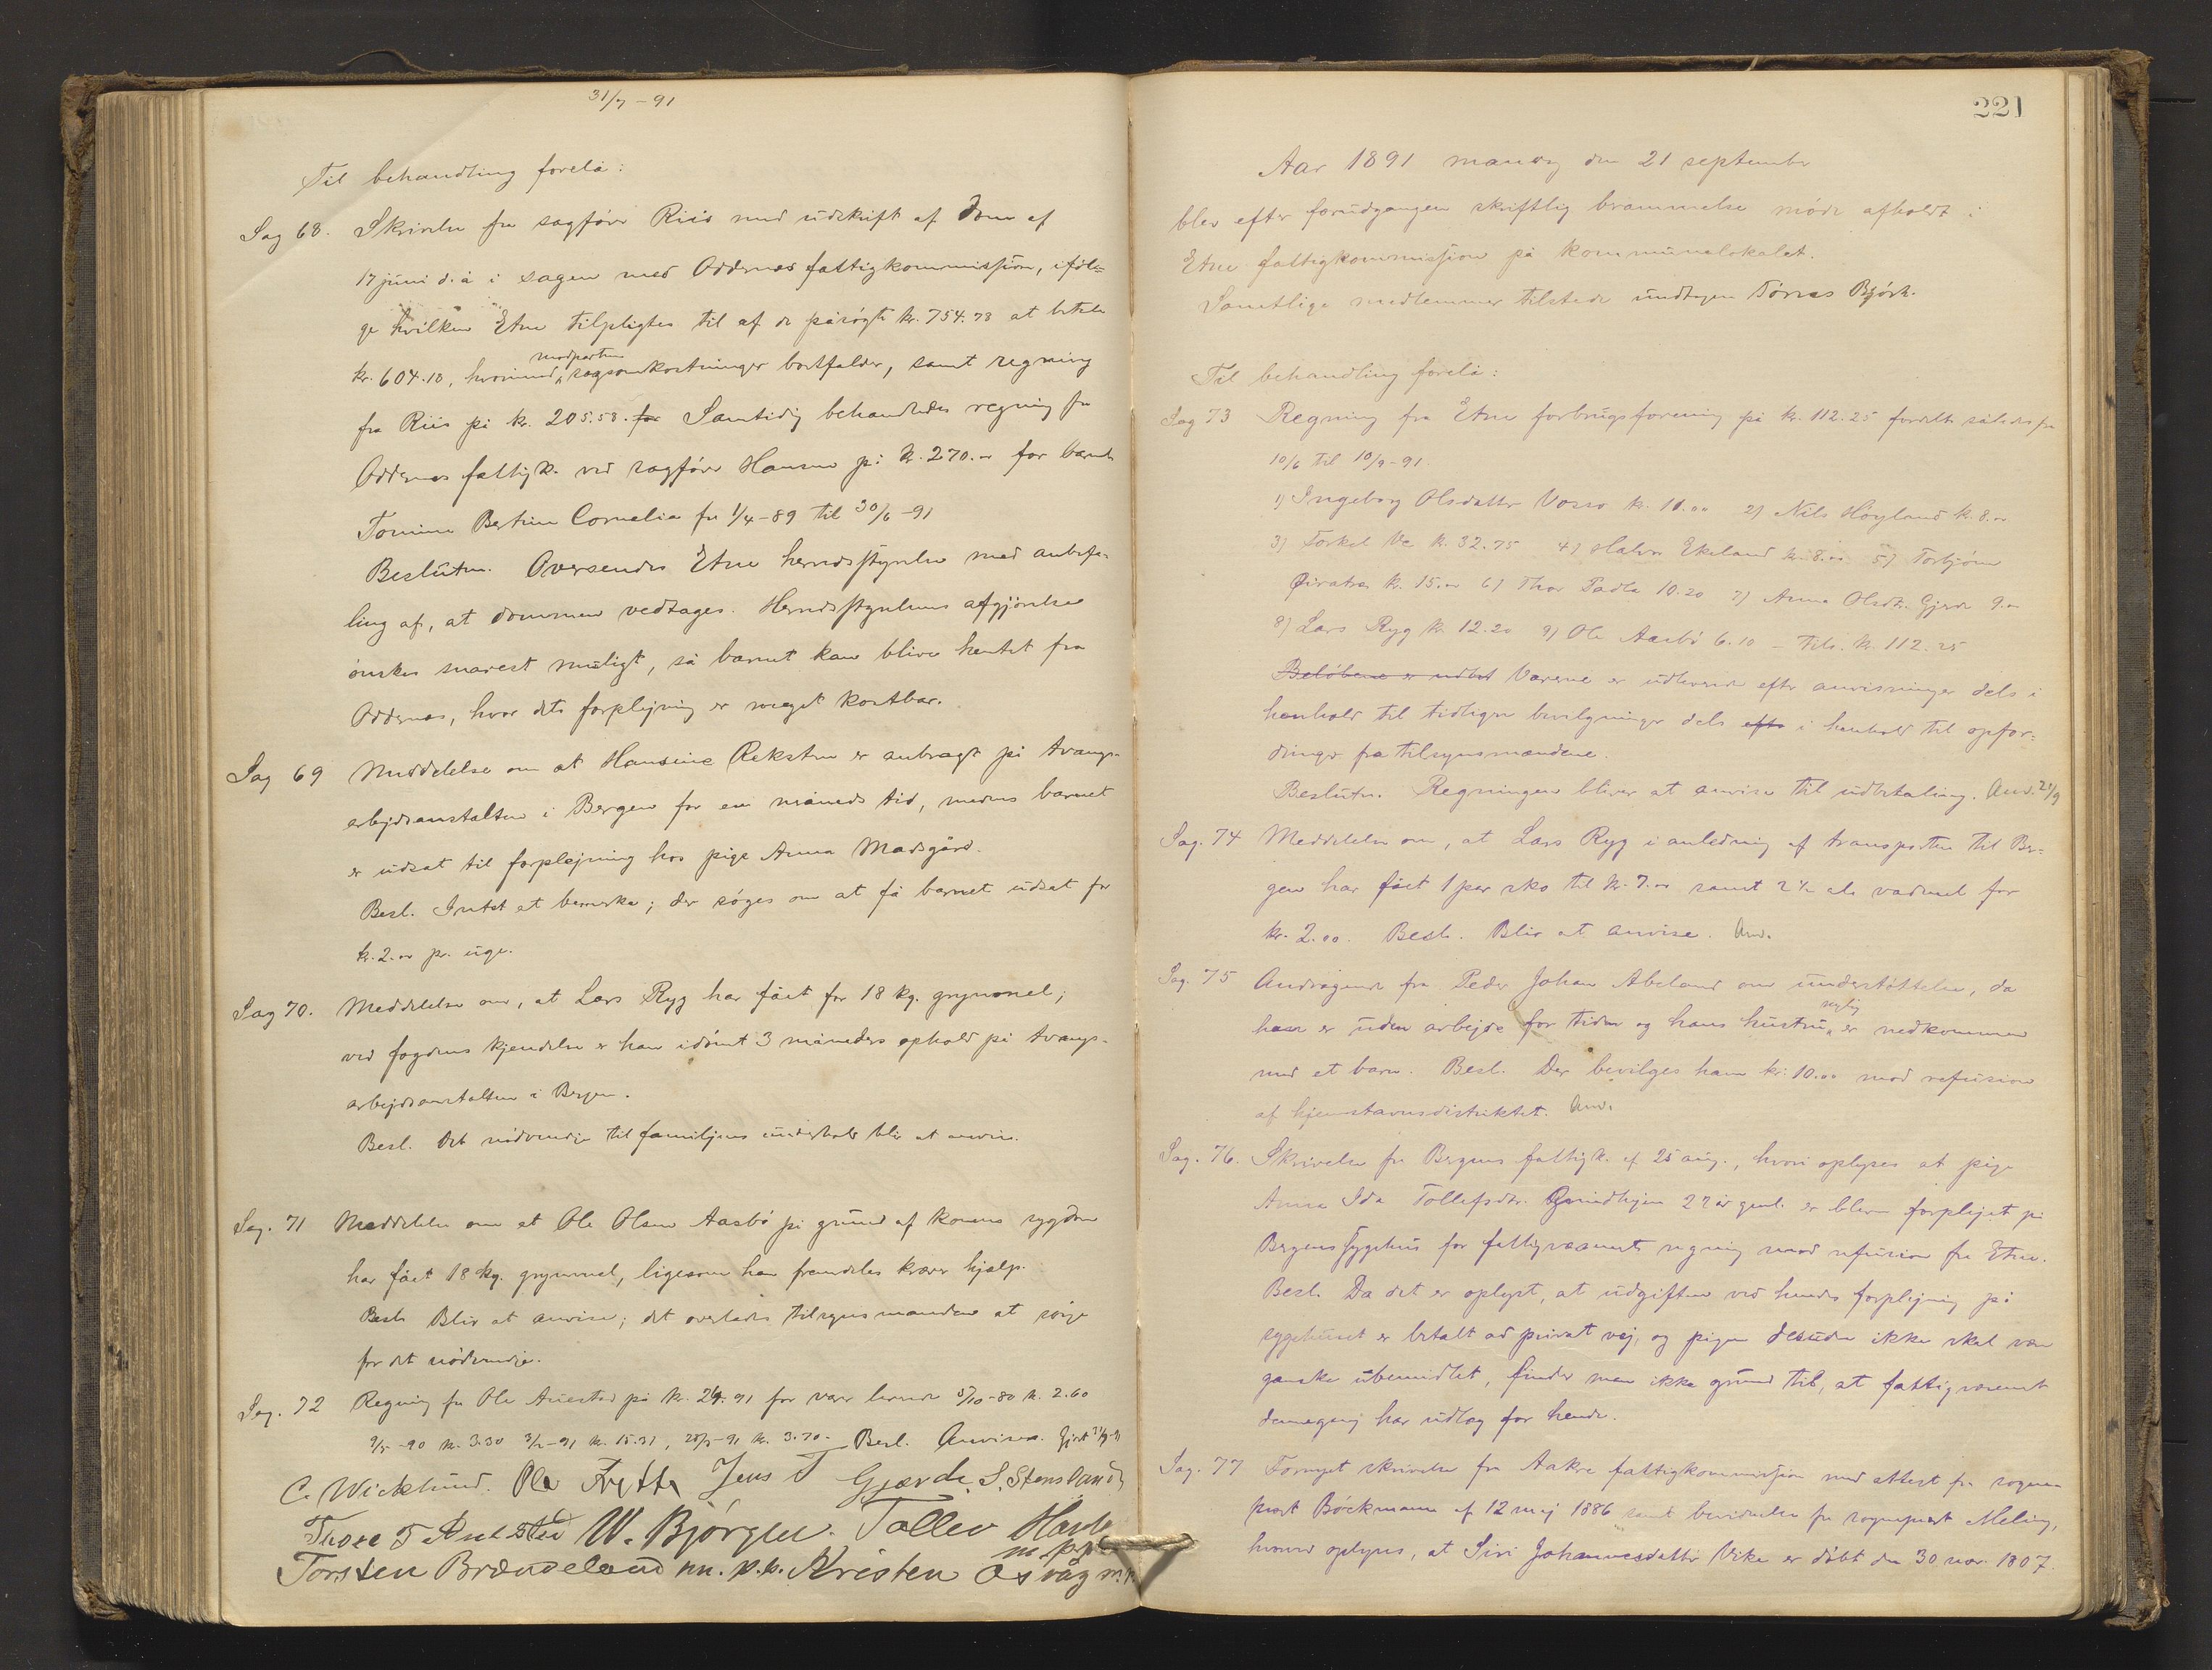 31/7 - 91
Til behandling forelå:
Sag 68. Skrivelse fra sagfører Riis med udskrift af dom af
17 juni d. å i sagen med Oddernes fattigkommission, iføl=
ge hvilken Etne tilpligtes til af de påsøgte kr. 754.73 at betale
modparten
kr. 604.10, hvorimod sagsomkostninger bortfalder, samt regning
fra Riis på kr. 205.58. for Samtidig behandledes regning fra
Oddernes fattigk. ved sagfører Hansen på kr. 270.00 for barnet
Tomine Bertine Cornelia fra 1/4-89 til 30/6-91
Beslutn. Oversendes Etne herredsstyrelse med anbefa-
ling af, at dommen vedtages. Herredsstyrelsens afgjørelse
ønskes snarest muligt, så barnet kan blive hentet fra
Oddernes, hvor dets forplejning er meget kostbar.
Sag 69 Meddelelse om at Hansine Reksten er anbragt på tvangs-
arbejdsanstalten i Bergen for en måneds tid, medens barnet
er udsat til forplejning hos pige Anna Madsgård.
Besl. Intet at bemærke; der søges om at få barnet udsat for
kr. 2.00 pr. uge.
Sag 70. Meddelelse om, at Lars Ryg har fået for 18 kg. grynmel;
ved fogdens kjendelse er han idømt 3 måneders ophold på tvangs-
arbejdsanstalten i Bergen.
Besl. Det nødvendige til familjens underhold blir at anvise.
Sag. 71 Meddelelse om at Ole Olsen Aasbø på grund af konens sygdom
har fået 18 kg. grynmel, ligesom han fremdeles kræver hjælp.
Besl. Blir at anvise; det overlades tilsynsmanden at sørge
for det nødvendige.
Sag. 72 Regning fra Ole Auestad på kr. 24.91 for varer leveret 5/10-80 kr. 2.60
9/5-90 kr. 3.30 3/2-91 kr. 15.31, 25/5-91 kr. 3.70. Besl. Anvises. Gjort 21/9-91
C. Wicklund. Ole Frette Jens T Gjærde. S. Stensland
Thore T. W. Bjørgen. Tollev Havle
m. p. p.
Torsten Brændeland m. p. p. Kristen Osvåg m. p.
221
Aar 1891 mandag den 21 september
blev efter forudgangen skriftlig berammelse møde afholdt i
Etne fattigkommission på kommunelokalet.
Samtlige medlemmer tilstede undtagen Tørres Bjørk.
Til behandling forelå:
Sag 73 Regning fra Etne forbrugsforening på kr. 112.25 fordelt således fra
10/6 til 10/9-91.
1) Ingeborg Olsdatter Vosso kr. 11.00 2) Nils Høyland kr. 8.00
3) Torkel Ve kr. 32.75 4) Halvor Ekeland kr. 8.00 5) Torbjørn
Øiratræ kr. 15.00 6) Thor Tadla 10.20 7) Anna Olsdt. Gjerde 9.00
8) Lars Ryg kr. 12.20 9) Ole Aasbø 6.10 – tils. kr. 112.25
Beløbene er udbet Varerne er udleveret efter anvisninger dels i
henhold til tidligere bevilgninger dels efter i henhold til opfor=
dringer fra tilsynsmændene.
Beslutn. Regningen bliver at anvise til udbetaling. Anv. 21/9
Sag. 74 Meddelelse om, at Lars Ryg i anledning af transporten til Ber=
gen har fået 1 par sko til kr. 7.00 samt 2 1/2 alen vadmel for
kr. 2.00. Besl. Blir at anvise. Anv.
Sag. 75 Andragende fra Peder Johan Abeland om understøttelse, da
nylig
han er uden arbejde for tiden og hans hustru er nedkommen
med et barn. Besl. Der bevilges ham kr. 10.00 mod refusion
af hjemstavnsdistriktet. Anv.
Sag. 76. Skrivelse fra Bergens fattigk. af 25 aug., hvori oplyses at pige
Anna Ida Tollefsdtr. Grindhejm 27 år gml. er bleven forplejet på
Bergens sygehus for fattigvæsenets regning mod refusion fra Etne.
Besl. Da det er oplyst, at udgiften ved hendes forplejning på
sygehuset er betalt ad privat vej, og pigen desuden ikke skal være
ganske ubemidlet, finder man ikke grund til, at fattigvæsenet
dennegang har udlæg for hende.
Sag. 77 Fornyet skrivelse fra Aakre fattigkommission med attest fra sogne-
prest Böckmann af 12 maj 1886 samt bevidnelse fra sogneprest Meling,
hvorved oplyses, at Siri Johannesdatter Vike er døbt den 30 nov. 1807.